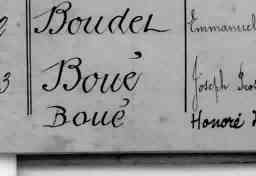 Boudet Emmanuel
3 Boué Joseph
Boué Honoré